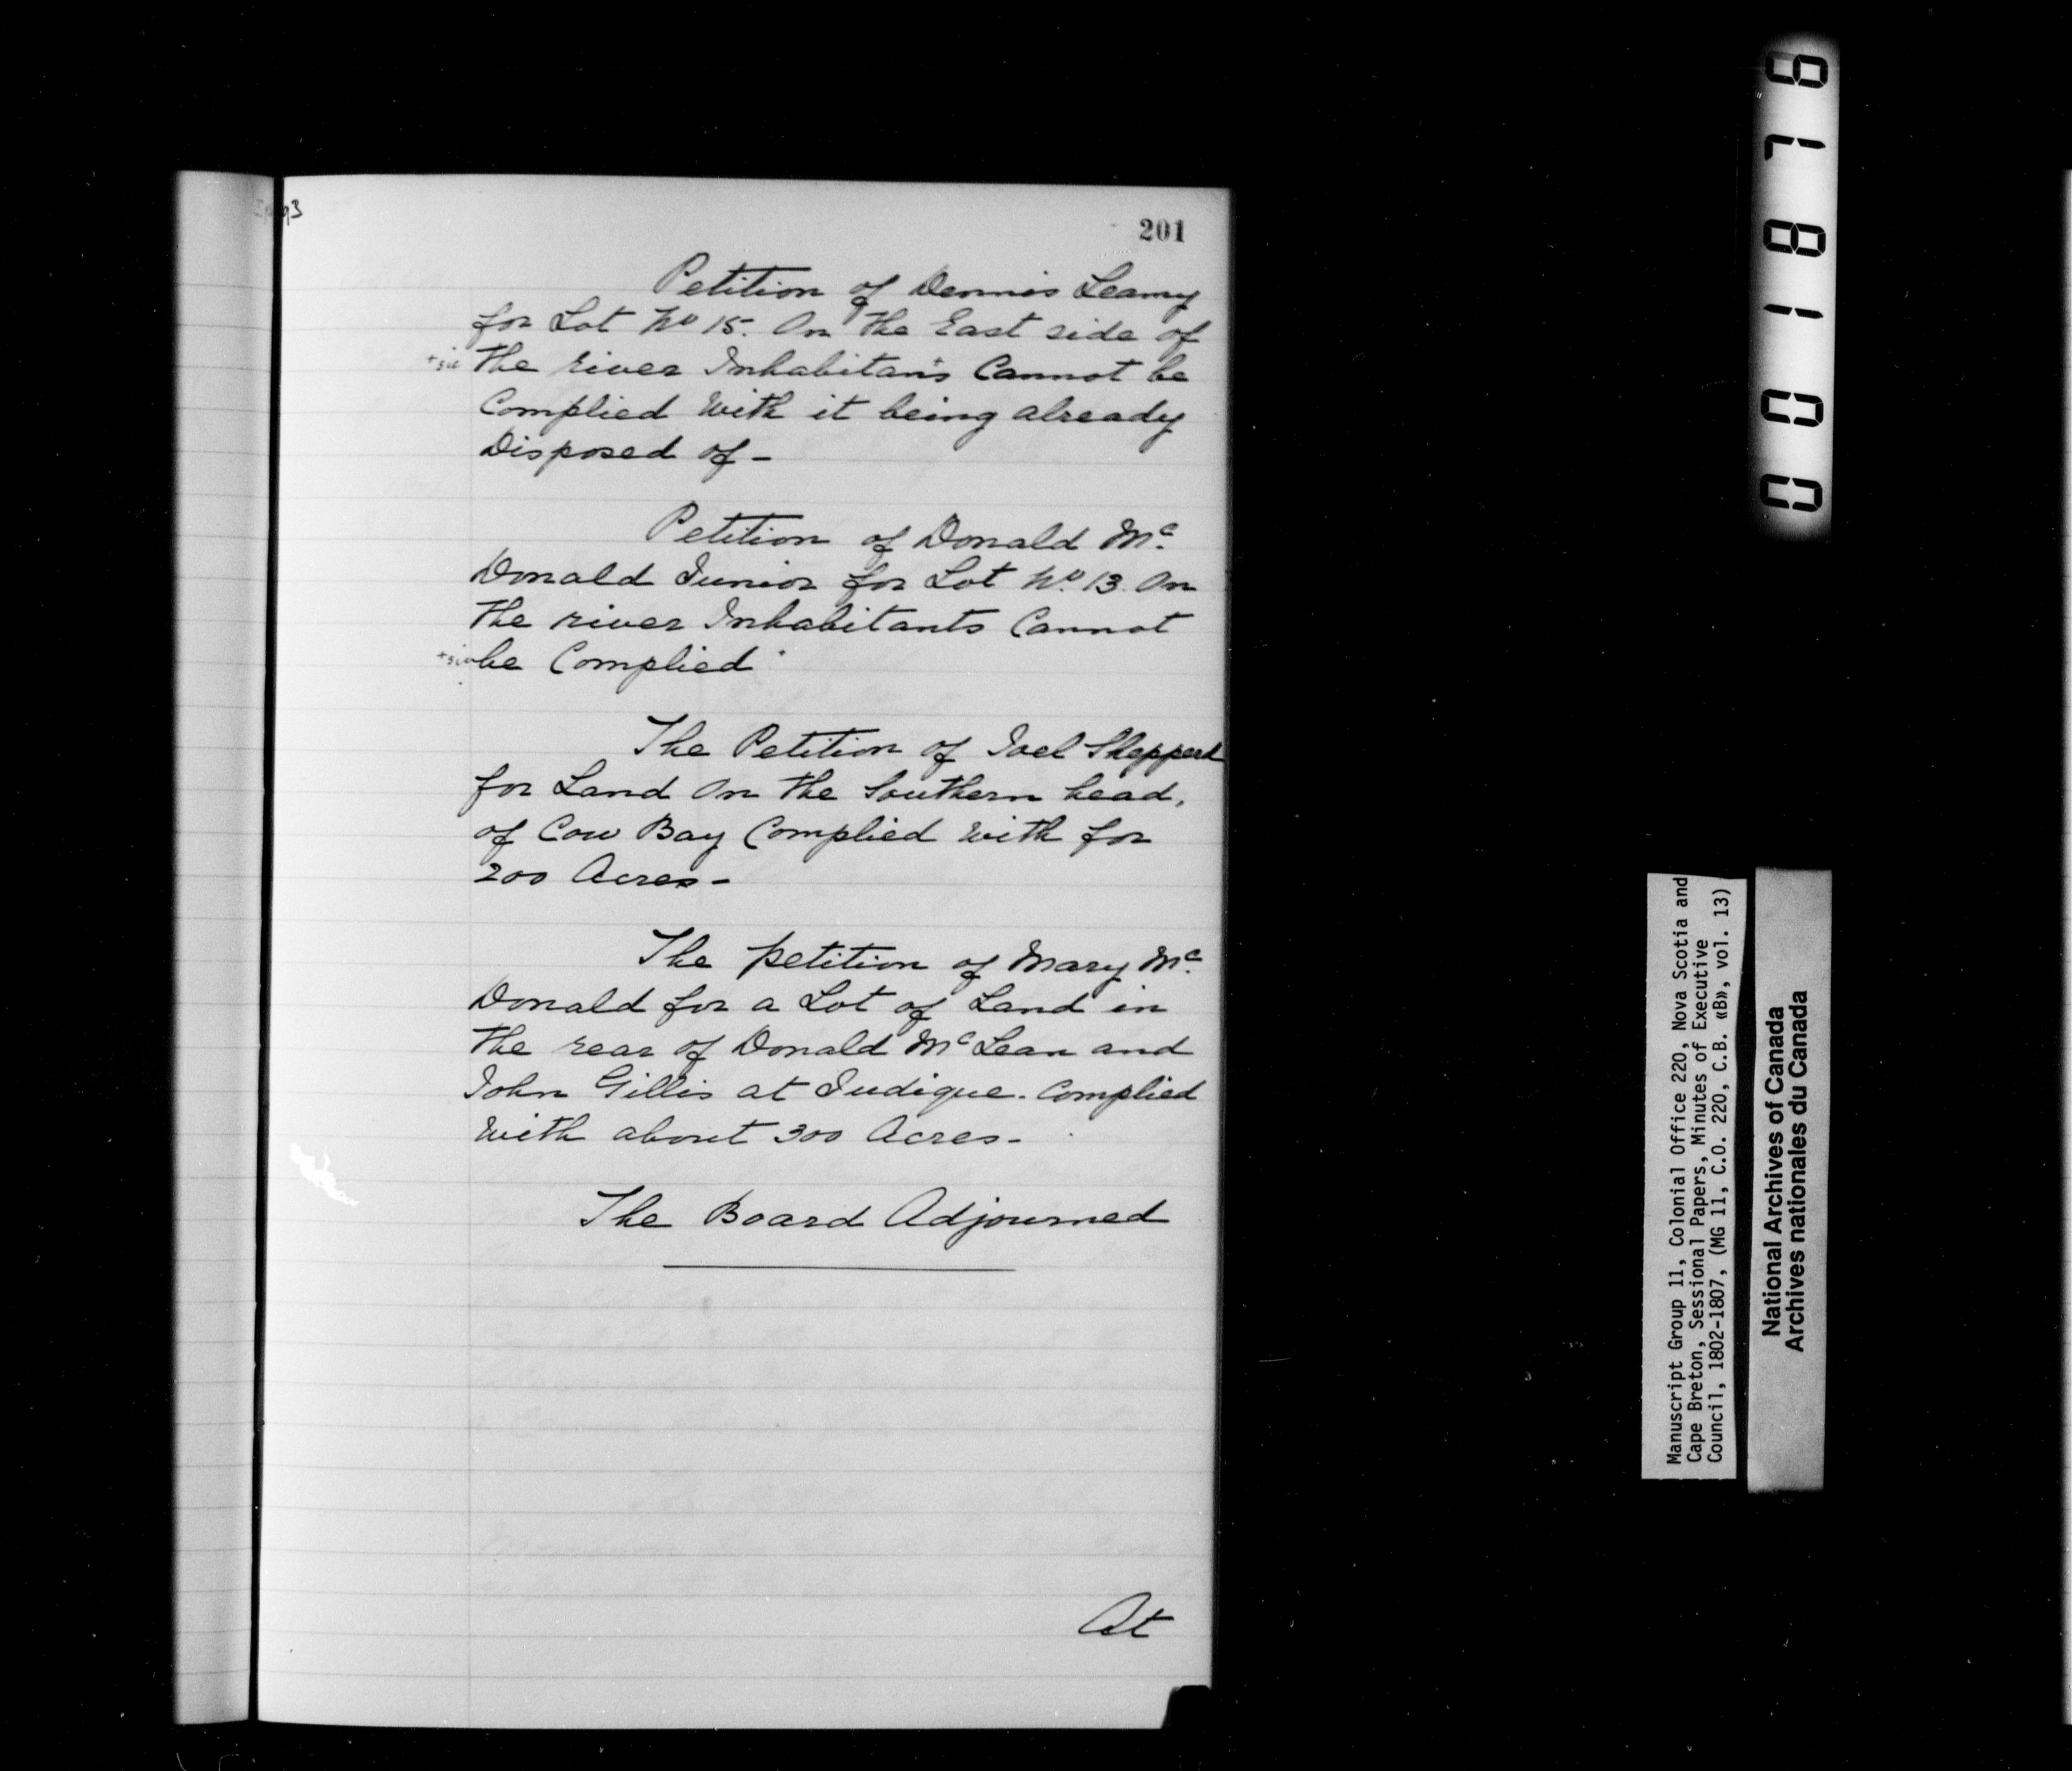 201
Petition of Dennis Leamy
for Lot No 15. On the East side of
+sic the river Inhabitan+s Cannot be
Complied With it being already
Disposed of -
Petition of Donald Mc.
Donald Junior for Lot No. 13. On
the river Inhabitants Cannot
+sic be Complied +
The Petition of Joel Sheppard
for Land On the Southern head,
of Cow Bay Complied with for
200 Acres -
The petition of Mary Mc.
Donald for a Lot of Land in
the rear of Donald McLean and
John Gillis at Judique. Complied
With about 300 Acres -
The Board Adjourned
At
001876
Manuscript Group 11, Colonial Office 220, Nova Scotia and
Cape Breton, Sessional Papers, Minutes of Executive
Council, 1802-1807, (MG 11, C.O. 220, C.B. «B», vol. 13)
National Archives of Canada
Archives nationales du Canada